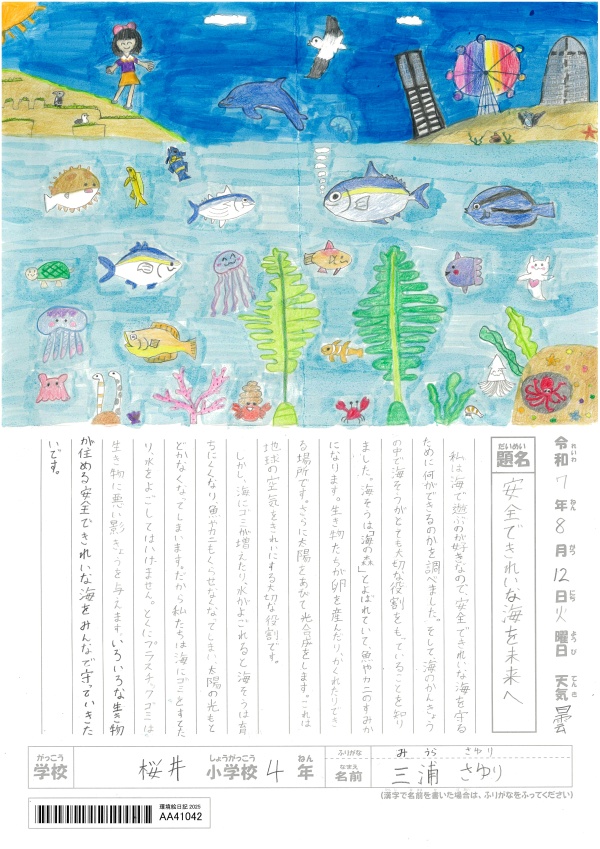 令和7年8月12日火曜日 天気 曇
れいわ ねん がつ にち ようび てんき
だいめい
題名
安全できれいな海を未来へ
私は海で遊ぶのが好きなので、安全できれいな海を守る
ために何ができるのかを調べました。そして海のかんきょう
の中で海そうがとても大切な役割をもっていることを知り
ました。海そうは「海の森」とよばれていて、魚やカニのすみか
になります。生き物たちが卵を産んだり、かくれたりでき
る場所です。さらに太陽をあびて光合成をします。これは
地球の空気をきれいにする大切な役割です。
しかし、海にゴミが増えたり、水がよごれると海そうは育
ちにくくなり、魚やカニもくらせなくなってしまい、太陽の光もと
どかなくなってしまいます。だから私たちは海にゴミをすてた
り、水をよごしてはいけません。とくにプラスチックゴミは
生き物に悪い影きょうを与えます。いろいろな生き物
が住める安全できれいな海をみんなで守っていきた
いです。
がっこう しょうがっこう ねん
学校 桜井 小学校 4 年
ふりがな みうら さゆり
なまえ
名前 三浦 さゆり
(漢字で名前を書いた場合は、ふりがなをふってください)
環境絵日記 2025
AA41042